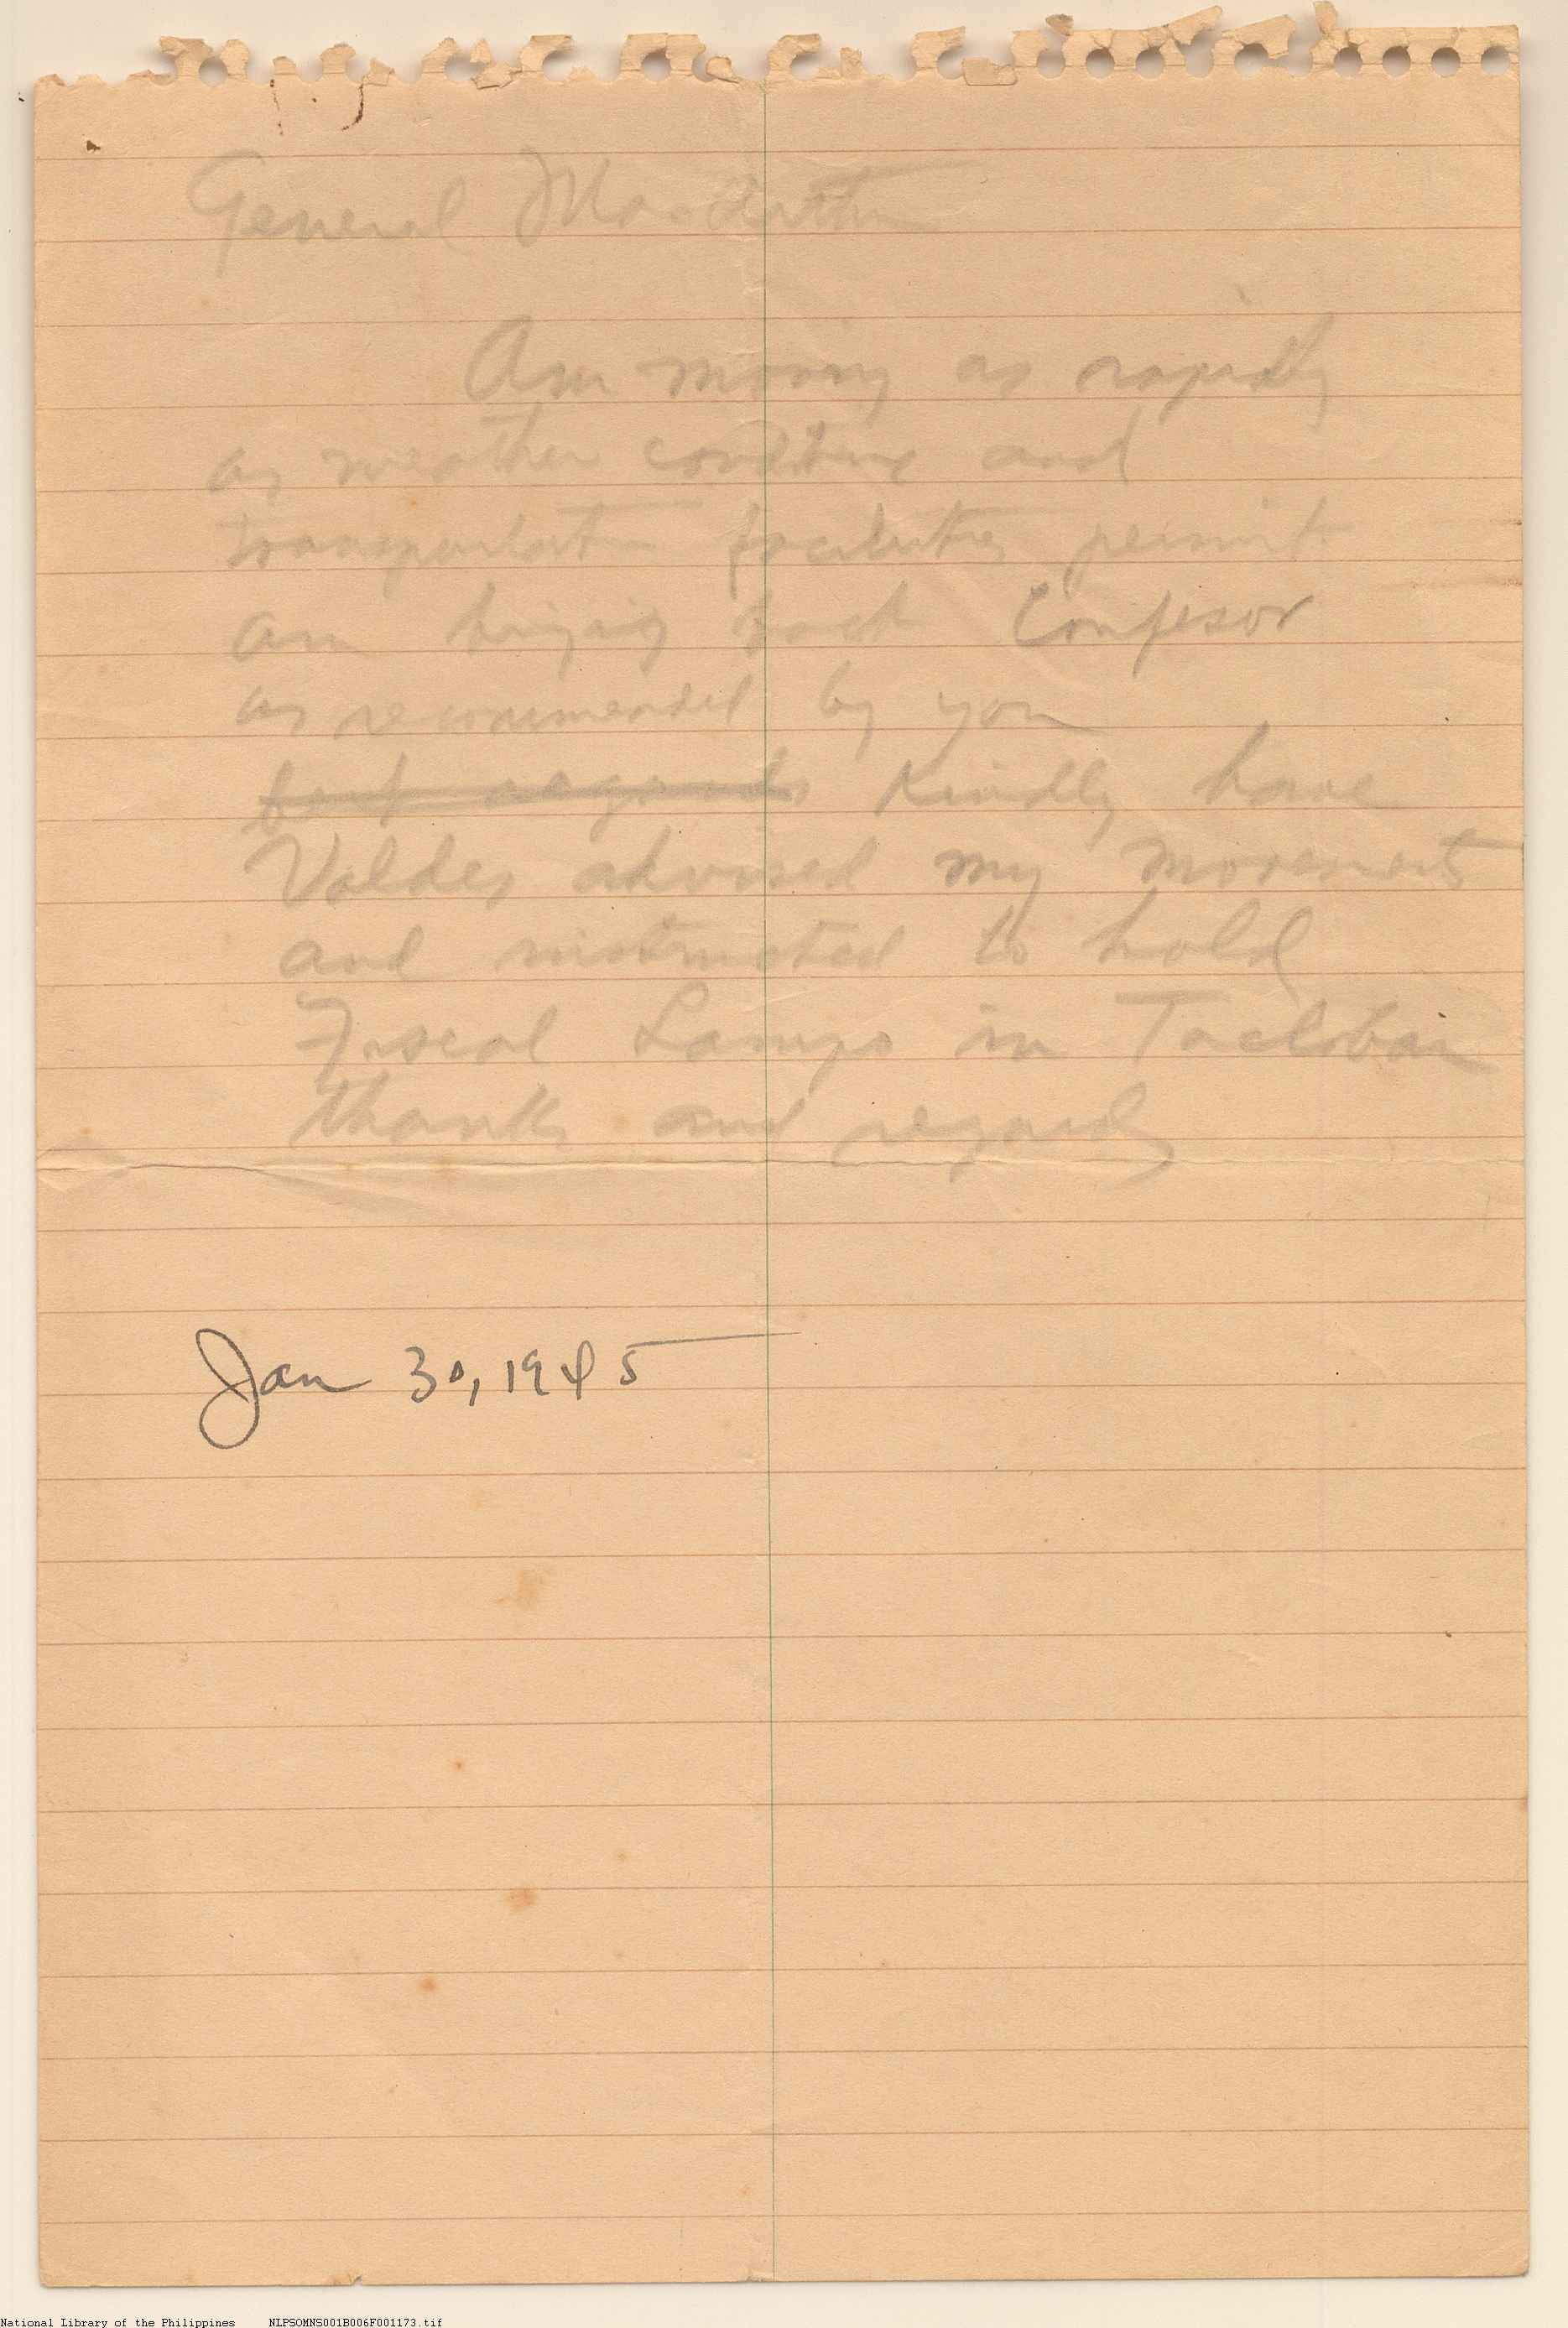 General MacArthur
Am moving as rapidly
as weather conditions and
transportation facilities permit
am bringing back Confesor
as recommended by you
best regards Kindly have
Valdes advised my movements
and instructed to hold
Fiscal Lampo in Tacloban
thanks and regards
Jan 30, 1945
National Library of the Philippines NLPSOMNS001B006F001173.tif